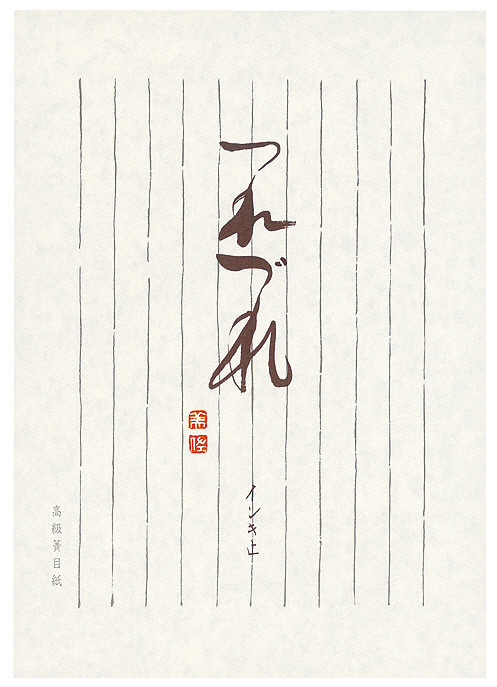 つれづれ
インキ止
高級簀目紙